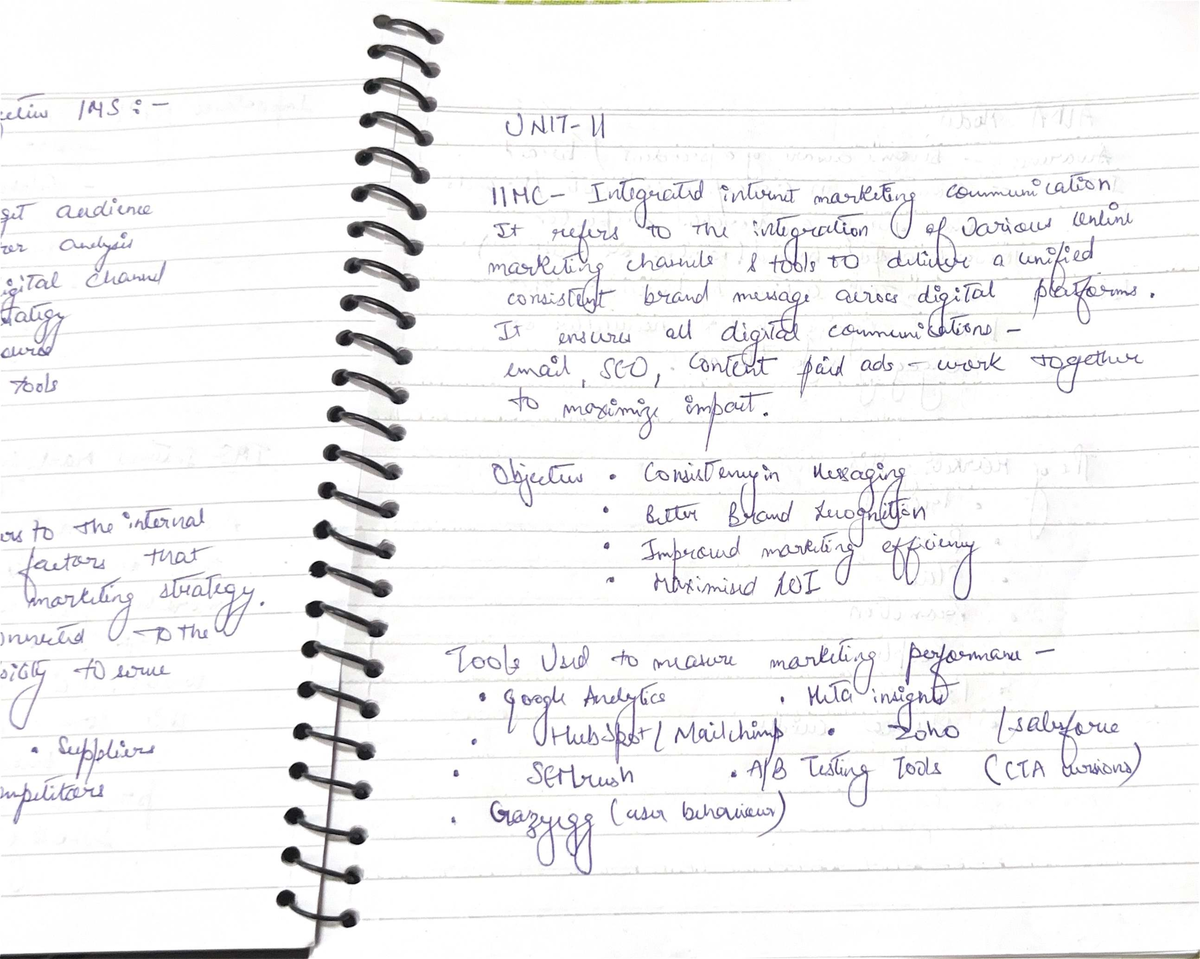 IMS : -
get audience
analysis
digital channel
tools
to the internal
factors that
marketing strategy.
to the
to serve
• Suppliers
UNIT-II
IIMC - Integrated internet marketing communication
It refers to the integration of various online
marketing channels & tools to deliver a unified
consistent brand message across digital platforms.
It ensures all digital communications -
email, SEO, content paid ads - work together
to maximize impact.
Objective • Consistency in Messaging
• Better Brand Recognition
• Improved marketing efficiency
• Maximised ROI
Tools Used to measure marketing performance -
• Google Analytics • Meta insights
• HubSpot / Mailchimp • Zoho / salesforce
• SEMrush • A/B Testing Tools (CTA versions)
• Crazyegg (user behaviour)